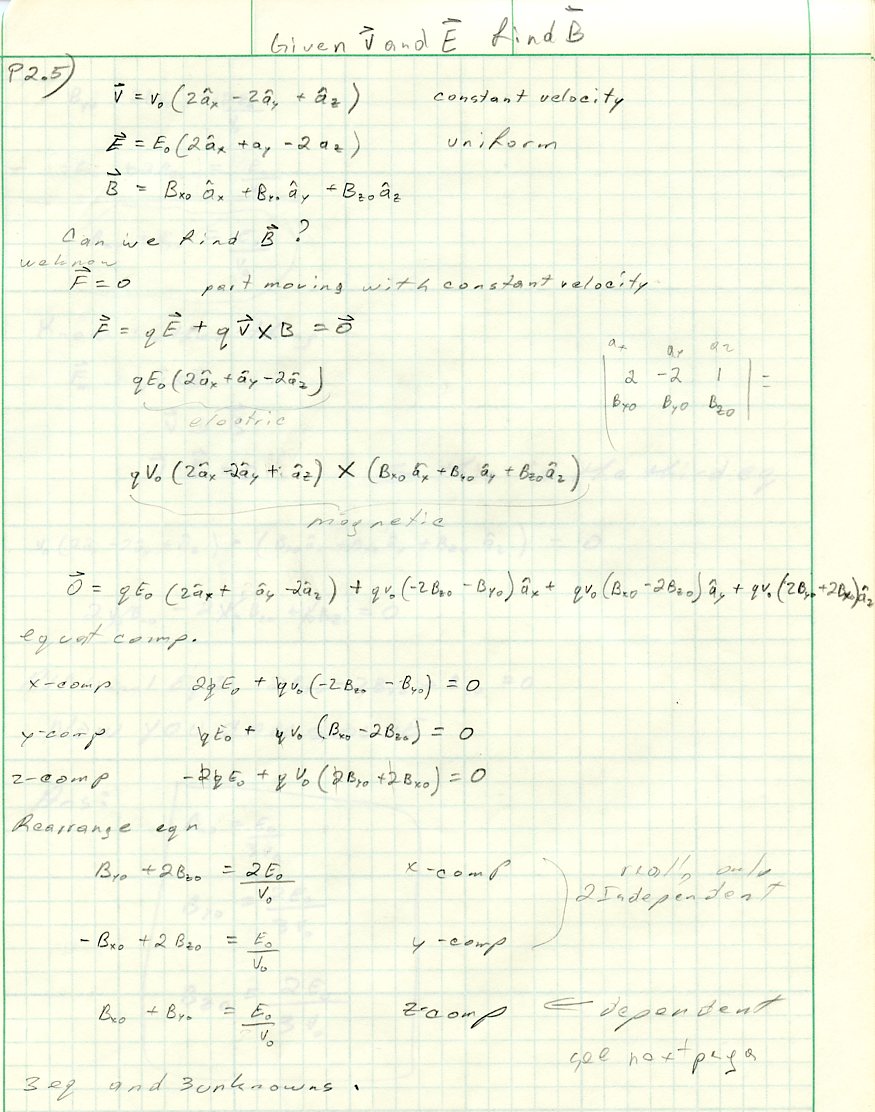 Given v⃗ and E⃗ find B⃗
P2.5)
v⃗ = v₀ (2â_x - 2â_y + â_z) constant velocity
E⃗ = E₀ (2â_x + a_y - 2 a_z) uniform
B⃗ = B_x0 â_x + B_y0 â_y + B_z0 â_z
Can we find B⃗ ?
we know
F⃗ = 0 part moving with constant velocity
F⃗ = qE⃗ + qv⃗ × B = 0⃗
a_x a_y a_z
qE₀ (2â_x + â_y - 2â_z) | 2 -2 1 | =
electric | B_x0 B_y0 B_z0 |
qV₀ (2â_x - 2â_y + â_z) × (B_x0 â_x + B_y0 â_y + B_z0 â_z)
magnetic
0⃗ = qE₀ (2â_x + â_y - 2â_z) + qv₀ (-2B_z0 - B_y0) â_x + qv₀ (B_x0 - 2B_z0) â_y + qv₀ (2B_y0 + 2B_x0) â_z
equat comp.
x-comp 2qE₀ + qv₀ (-2B_z0 - B_y0) = 0
y-comp qE₀ + qv₀ (B_x0 - 2B_z0) = 0
z-comp -2qE₀ + qV₀ (2B_y0 + 2B_x0) = 0
Rearrange eqn
B_y0 + 2B_z0 = 2E₀/V₀ x-comp really only
2 Independent
-B_x0 + 2B_z0 = E₀/V₀ y-comp
B_x0 + B_y0 = E₀/V₀ z-comp ⇐ dependent
see next page
3 eq and 3 unknowns.